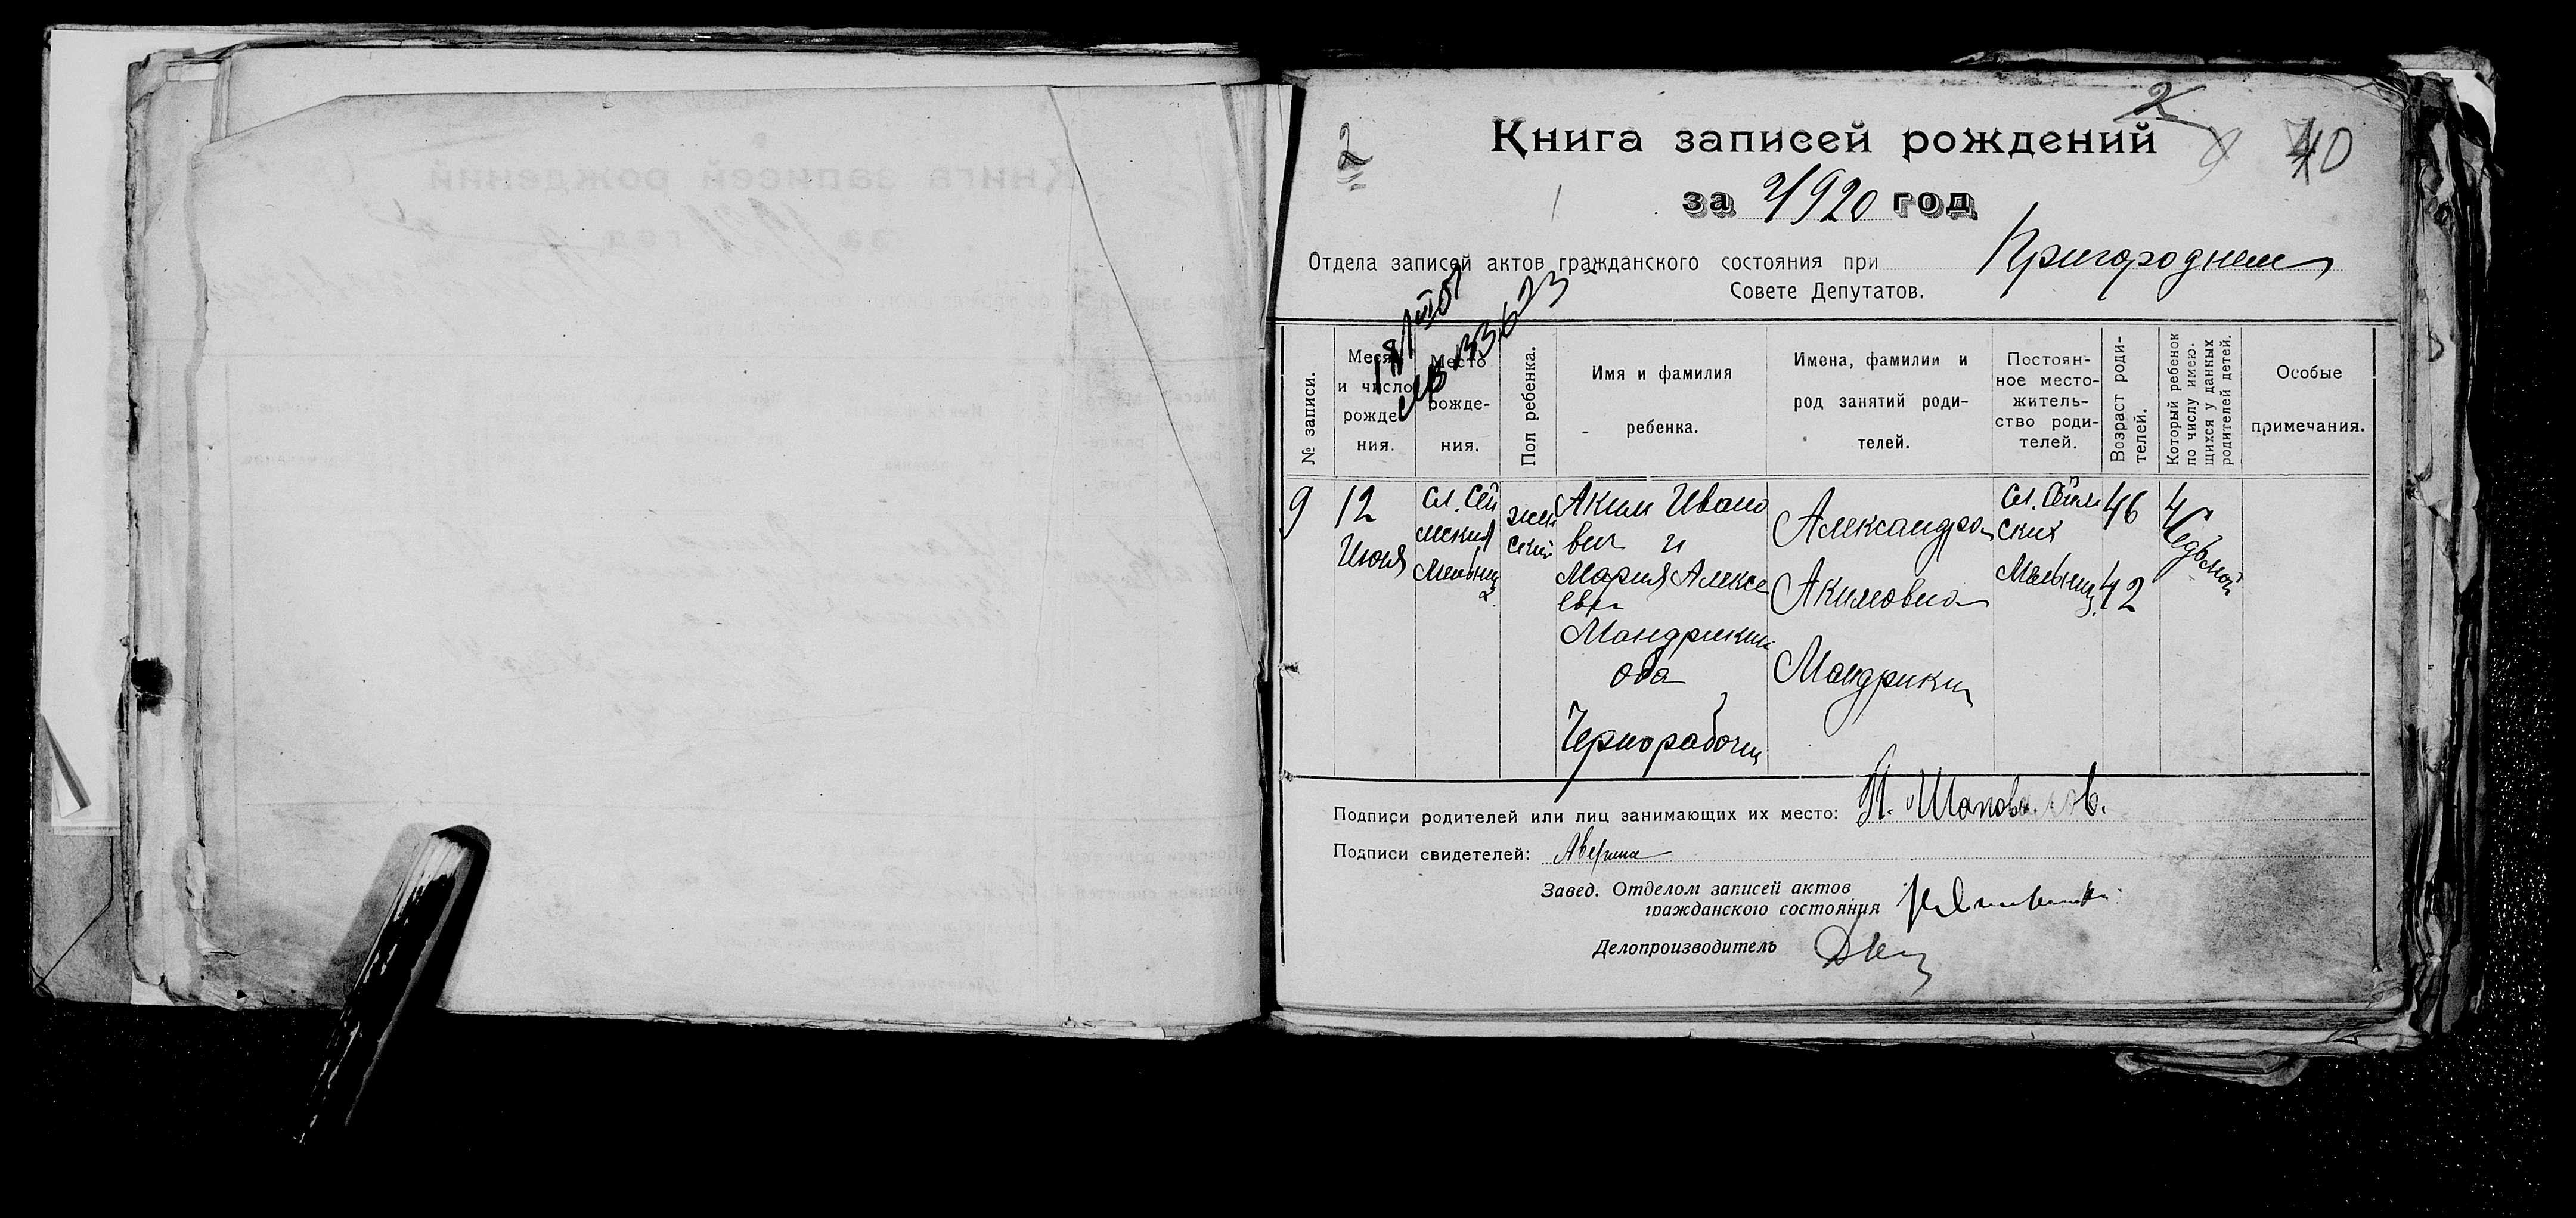 2
2
40
Книга записей рождений
за 1920 год
Отдела записей актов гражданского состояния при Пригородном
Совете Депутатов.
№ записи.
Месяц и число рождения.
Место рождения.
Пол ребенка.
Имя и фамилия ребенка.
Имена, фамилии и род занятий родителей.
Постоянное местожительство родителей.
Возраст родителей.
Который ребенок по числу имеющихся у данных родителей детей.
Особые примечания.
9
12
Июня
сл.
женский
Аким Ивано
вич и
Мария Алексе
евна
Мандрикин
ова
Чернорабочий
Александра
Акимовна
Мандрикин
сл.
46
42
Седьмой
Подписи родителей или лиц занимающих их место: П. Шаповалов.
Подписи свидетелей:
Завед. Отделом записей актов
гражданского состояния
Делопроизводитель